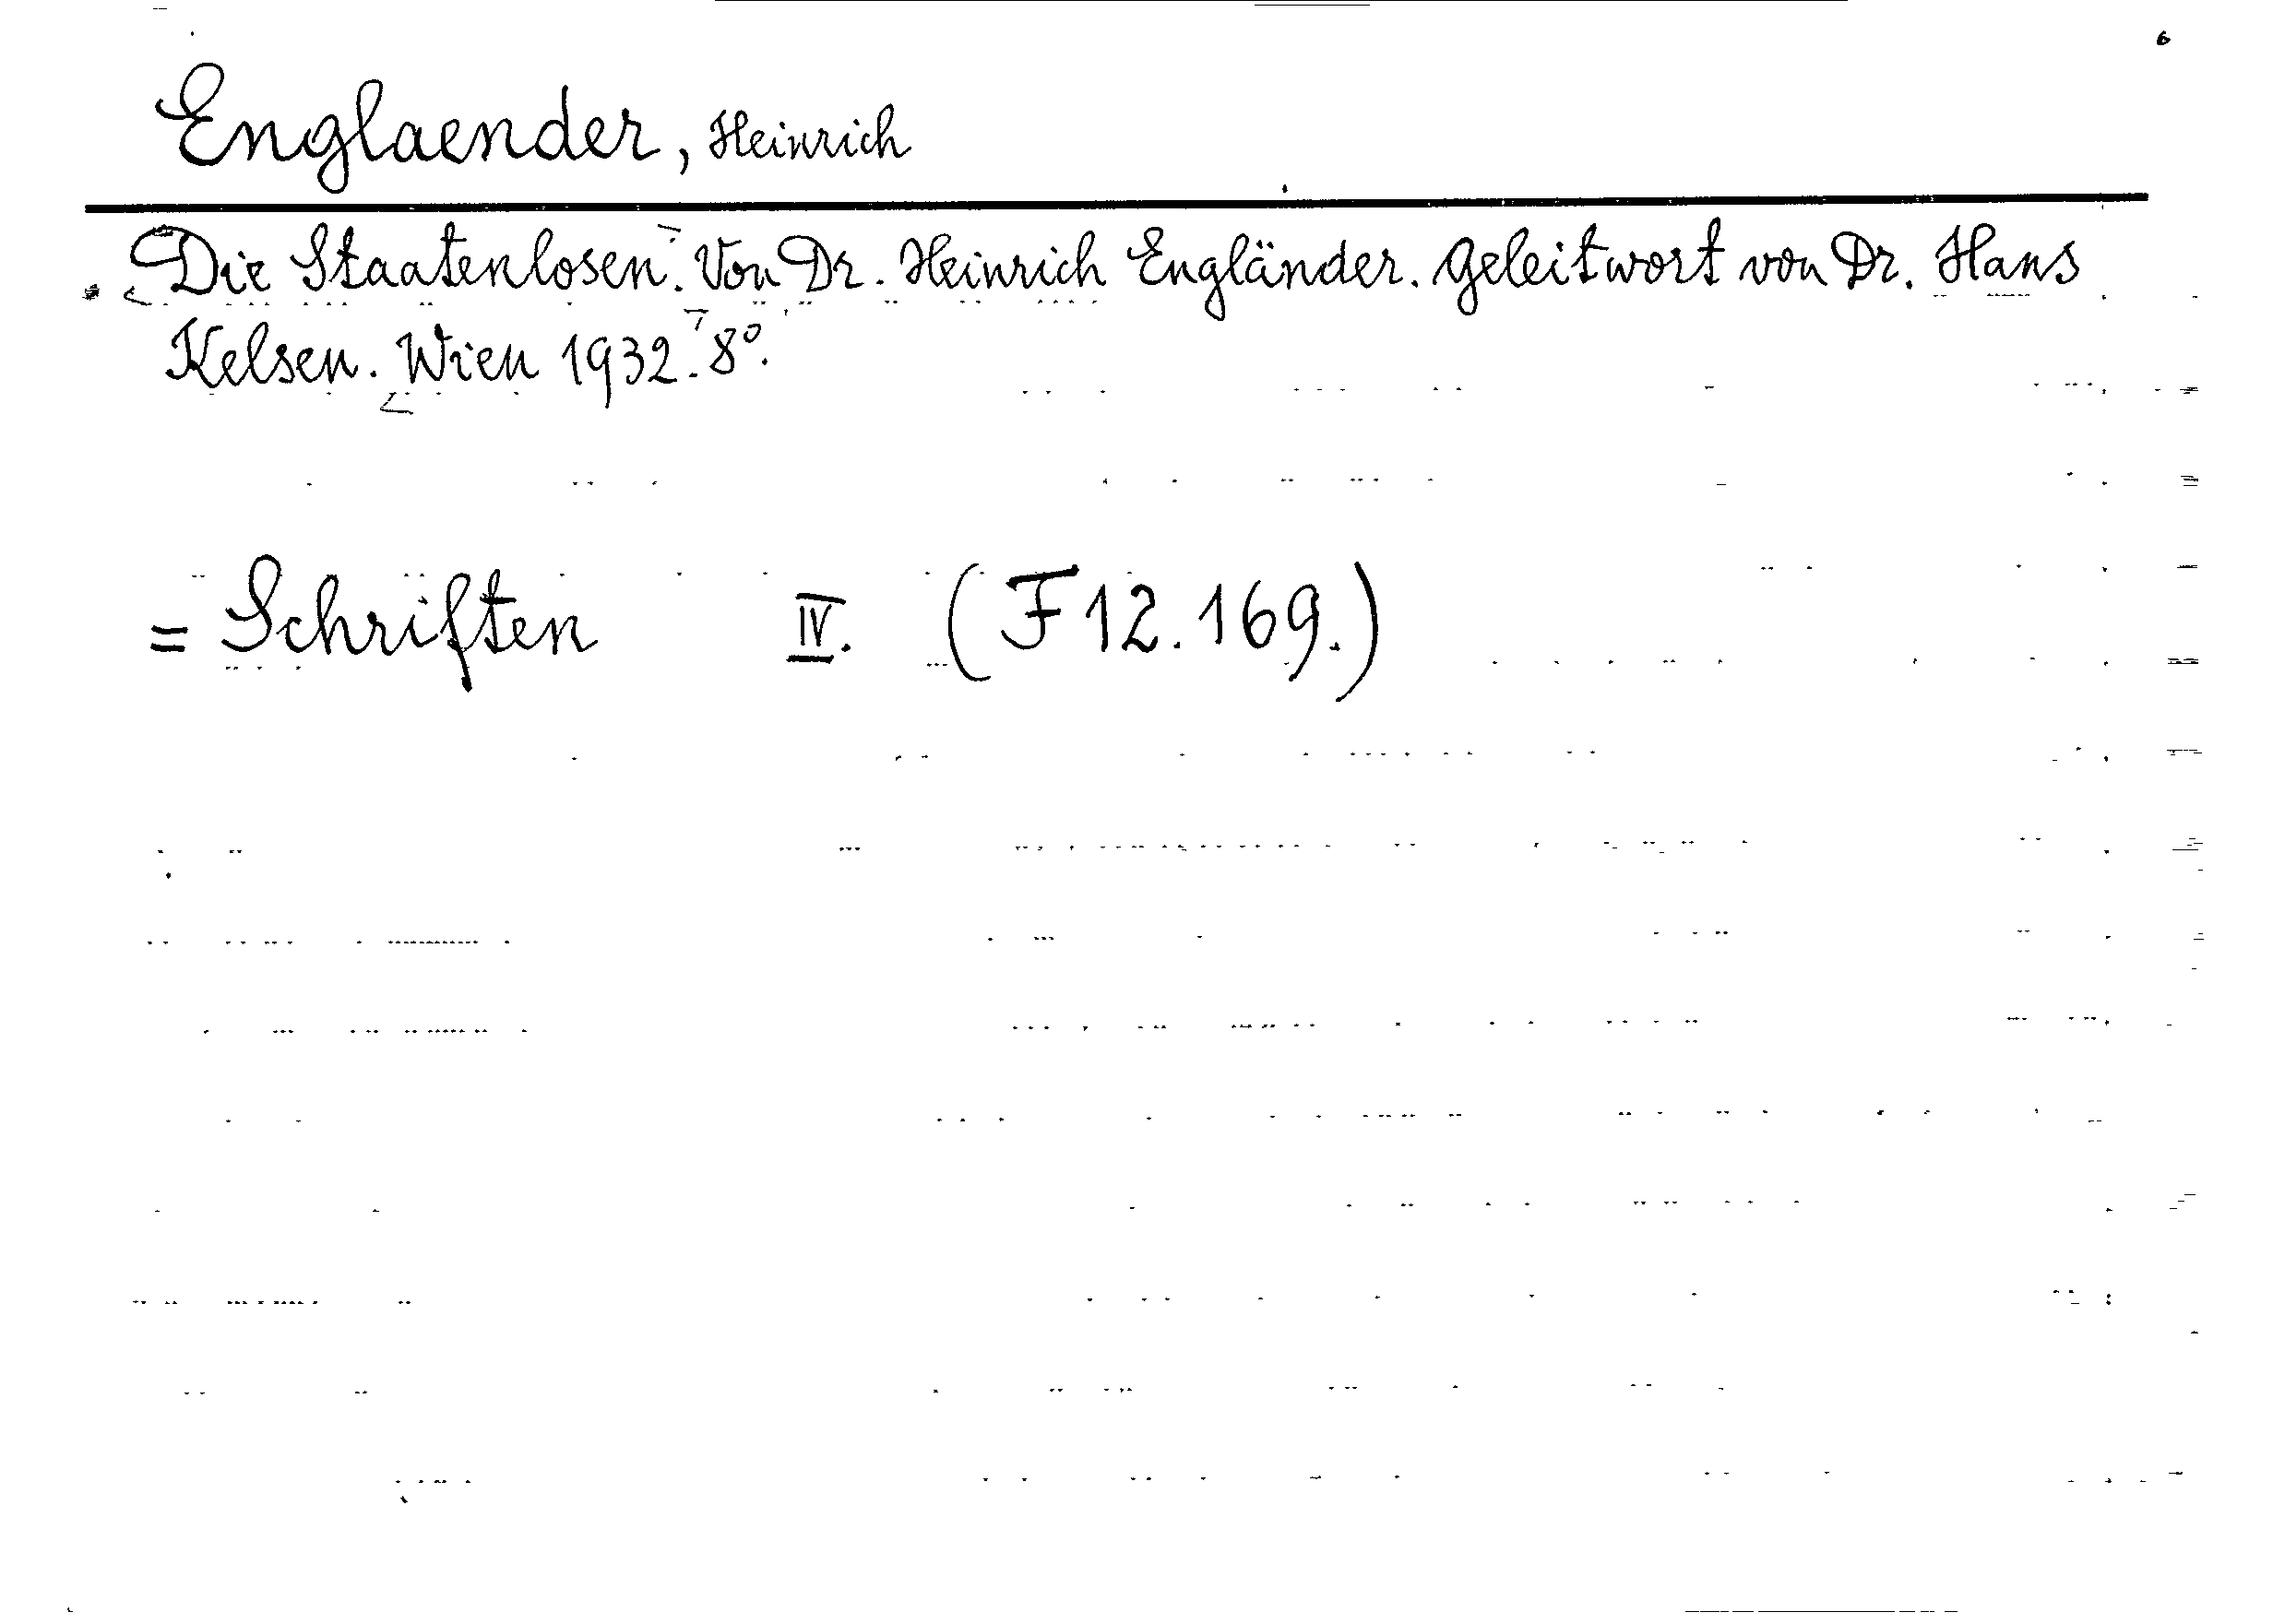 6
Englaender, Heinrich
Die Staatenlosen. Von Dr. Heinrich Engländer. Geleitwort von Dr. Hans
Kelsen. Wien 1932. 8°.
= Schriften IV. (F12.169.)